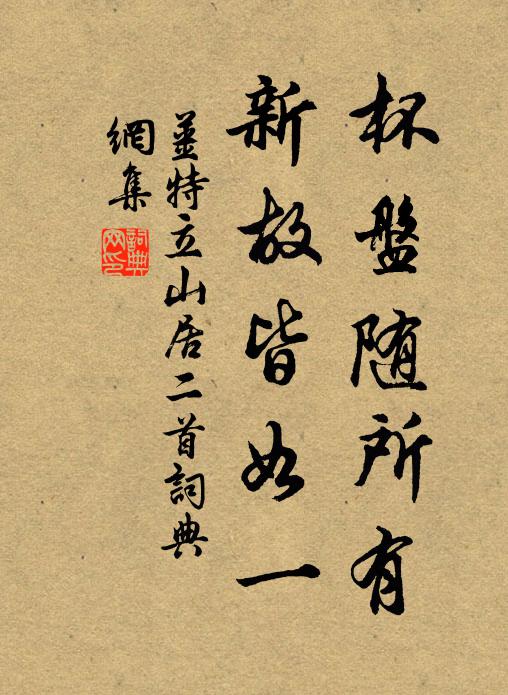 杯盤随所有
新故皆如一
姜特立山居二首詞典
網集
詞典網印